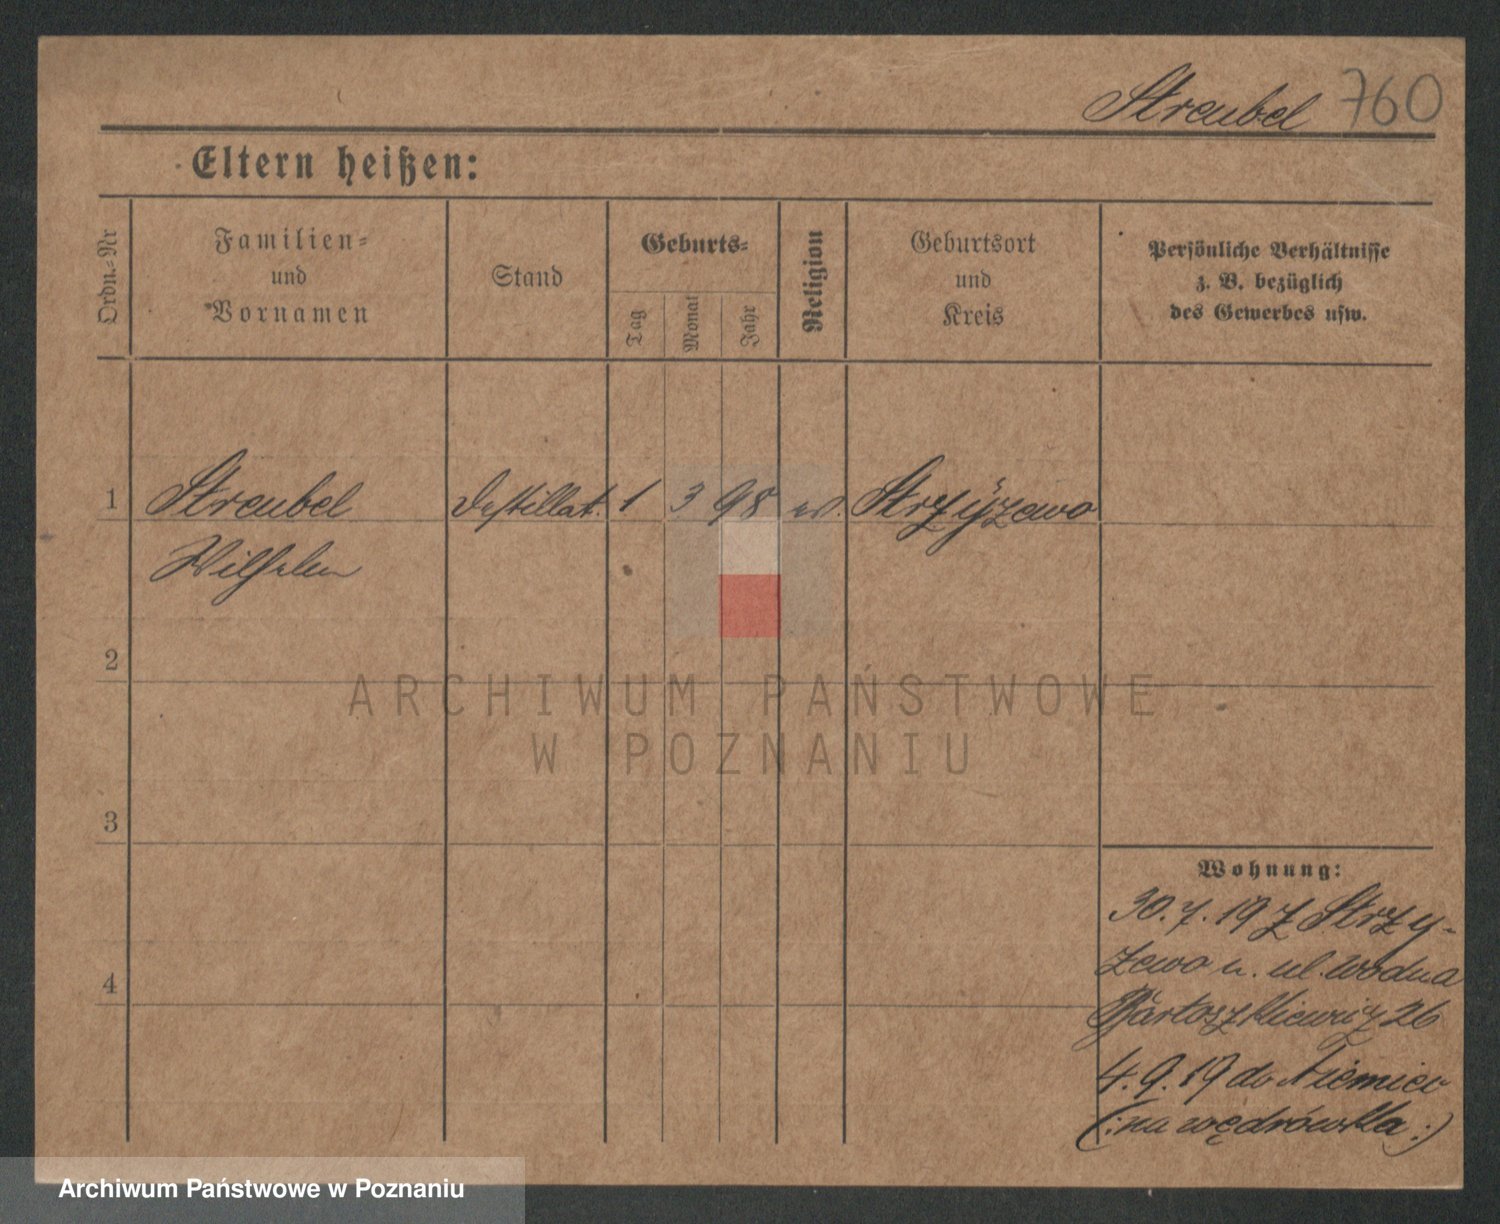 Streubel 760
Eltern heißen:
Ordn.-Nr
Familien-
und
Vornamen
Stand
Geburts-
Tag
Monat
Jahr
Religion
Geburtsort
und
Kreis
Persönliche Verhältnisse
z. B. bezüglich
des Gewerbes usw.
1 Streubel Destillat. 1 3 98 ev. Strzyżewo
Wilhelm
2
3
4
ARCHIWUM PAŃSTWOWE
W POZNANIU
Wohnung:
30.7.19 z Strzy-
żewo u. ul. Wodna
Bartoszkiewicz 26
4.9.19 do Niemiec
(: na wędrówkę :)
Archiwum Państwowe w Poznaniu